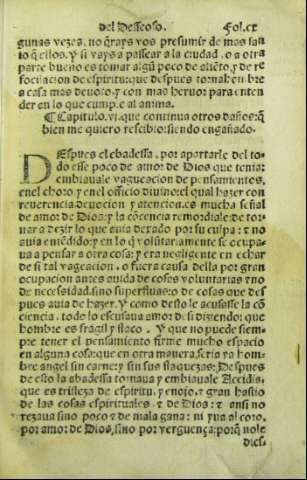 del Desseoso. Fol.cx
gunas vezes, no q̃rays vos presumir de mas san
to q̃ ellos. y si vays a passear a la ciudad, o a otra
parte bueno es tomar algũ poco de aliẽto, y de re
focilacion de espiritu: que despues tornah en bre
a casa mas deuoto, y con mas heruor para enten
der en lo que cumple al anima.
¶ Capitulo. vj. que continua otros daños: q̃
bien me quiero rescibio: siendo engañado.
DEspues el abadessa, por apartarle del to
do esse poco de amor de Dios que tenia:
embiauale vagueacion de pensamientos,
en el choro, y en el officio diuino: el qual hazer con
reuerencia: deuocion y atencion, es mucha señal
de amor de Dios: y la cõcencia remordiale: de tor
nar a dezir lo que auia dexado por su culpa: ⁊ no
auia entẽdido: y en lo q̃ volũtariamẽte se ocupa
ua a pensar a otra cosa: y era negligente en echar
de si tal vageacion, o fuera causa della por gran
ocupacion antes auida de cosas voluntarias ⁊ no
de necessidad, sino superfluas: o de cosas que des
pues auia de hazer. Y como desto le acusasse la cõ
ciencia, todo lo escusaua amor de si diziendo: que
hombre es fragil y flaco. Y que no puede siem-
pre tener el pensamiento firme mucho espacio
en alguna cosa: que en otra manera, seria ya hom
bre angel sin carne: y sin sus flaquezas: Despues
de esto la abadessa tomaua y embiauale Accidia,
que es tristeza de espiritu, y enojo, ⁊ gran hastio
de las cosas espirituales ⁊ de Dios: ⁊ ansi no
rezaua sino poco ⁊ de mala gana: ni yua al coro,
por amor de Dios, sino por verguença: porq̃ no le
dies-